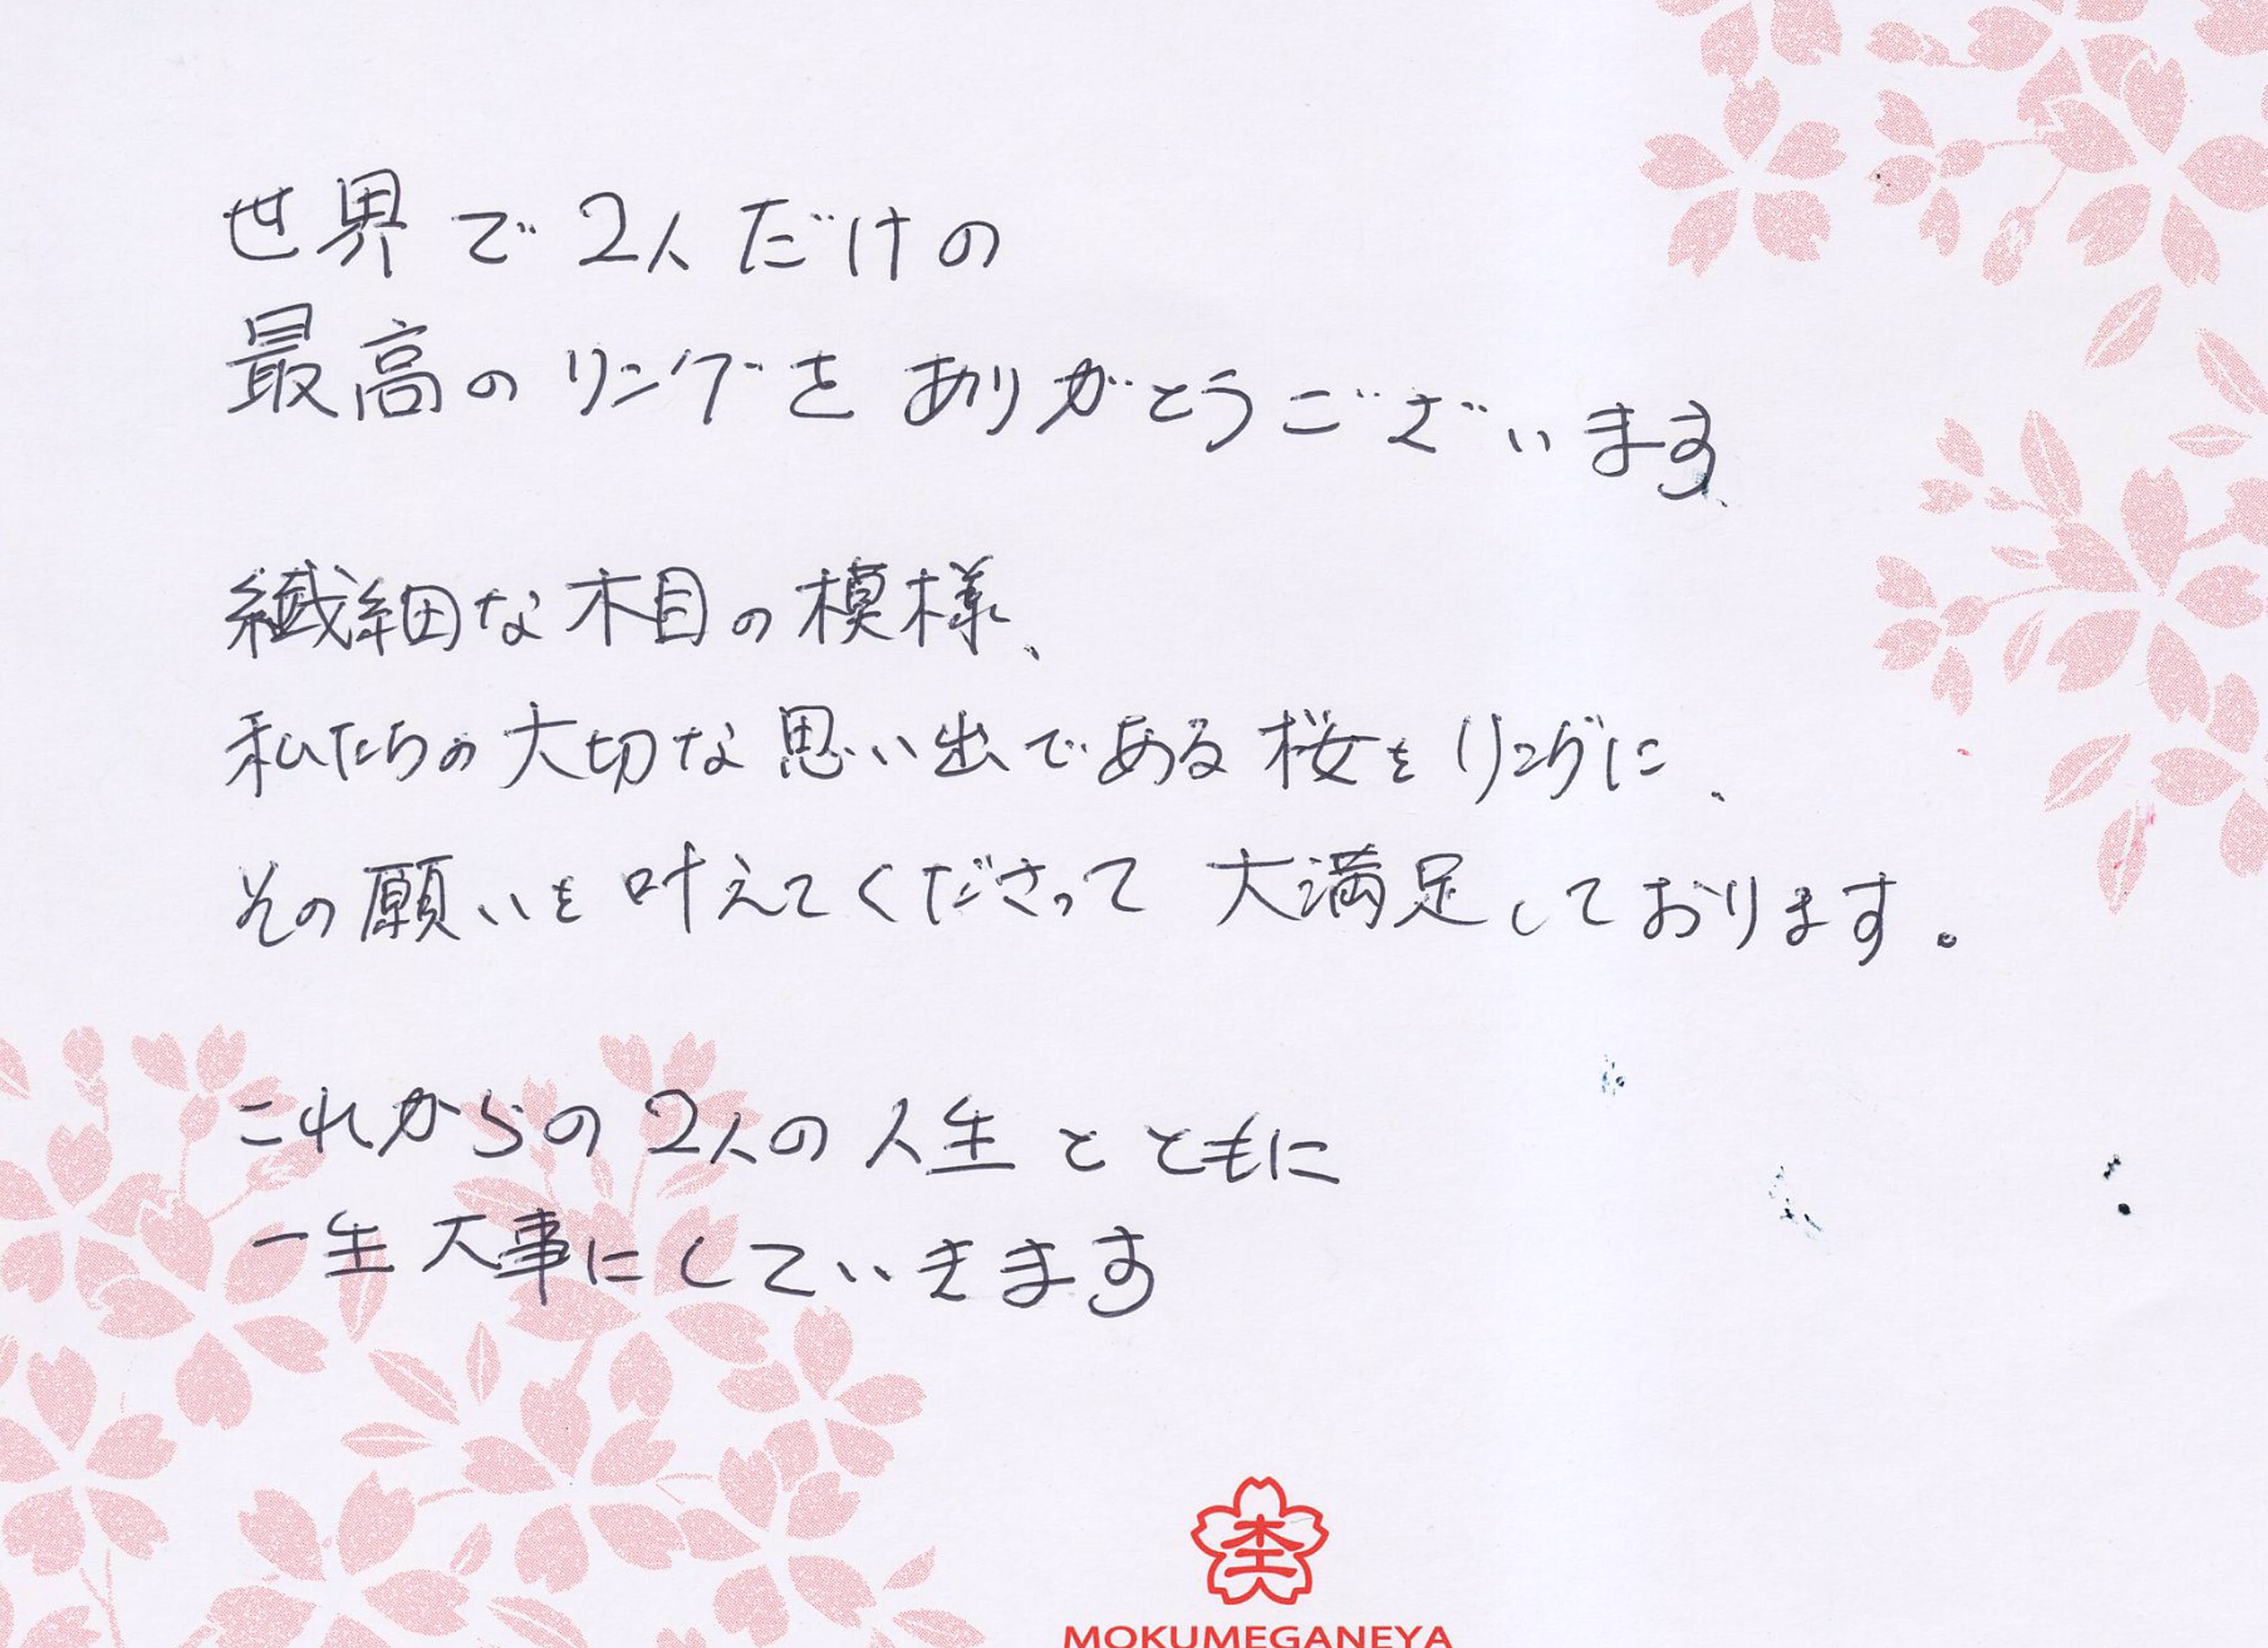 世界で2人だけの
最高のリングをありがとうございます
繊細な木目の模様、
私たちの大切な思い出である桜をリングに、
その願いを叶えてくださって大満足しております。
これからの2人の人生とともに
一生大事にしていきます
杢
MOKUMEGANEYA